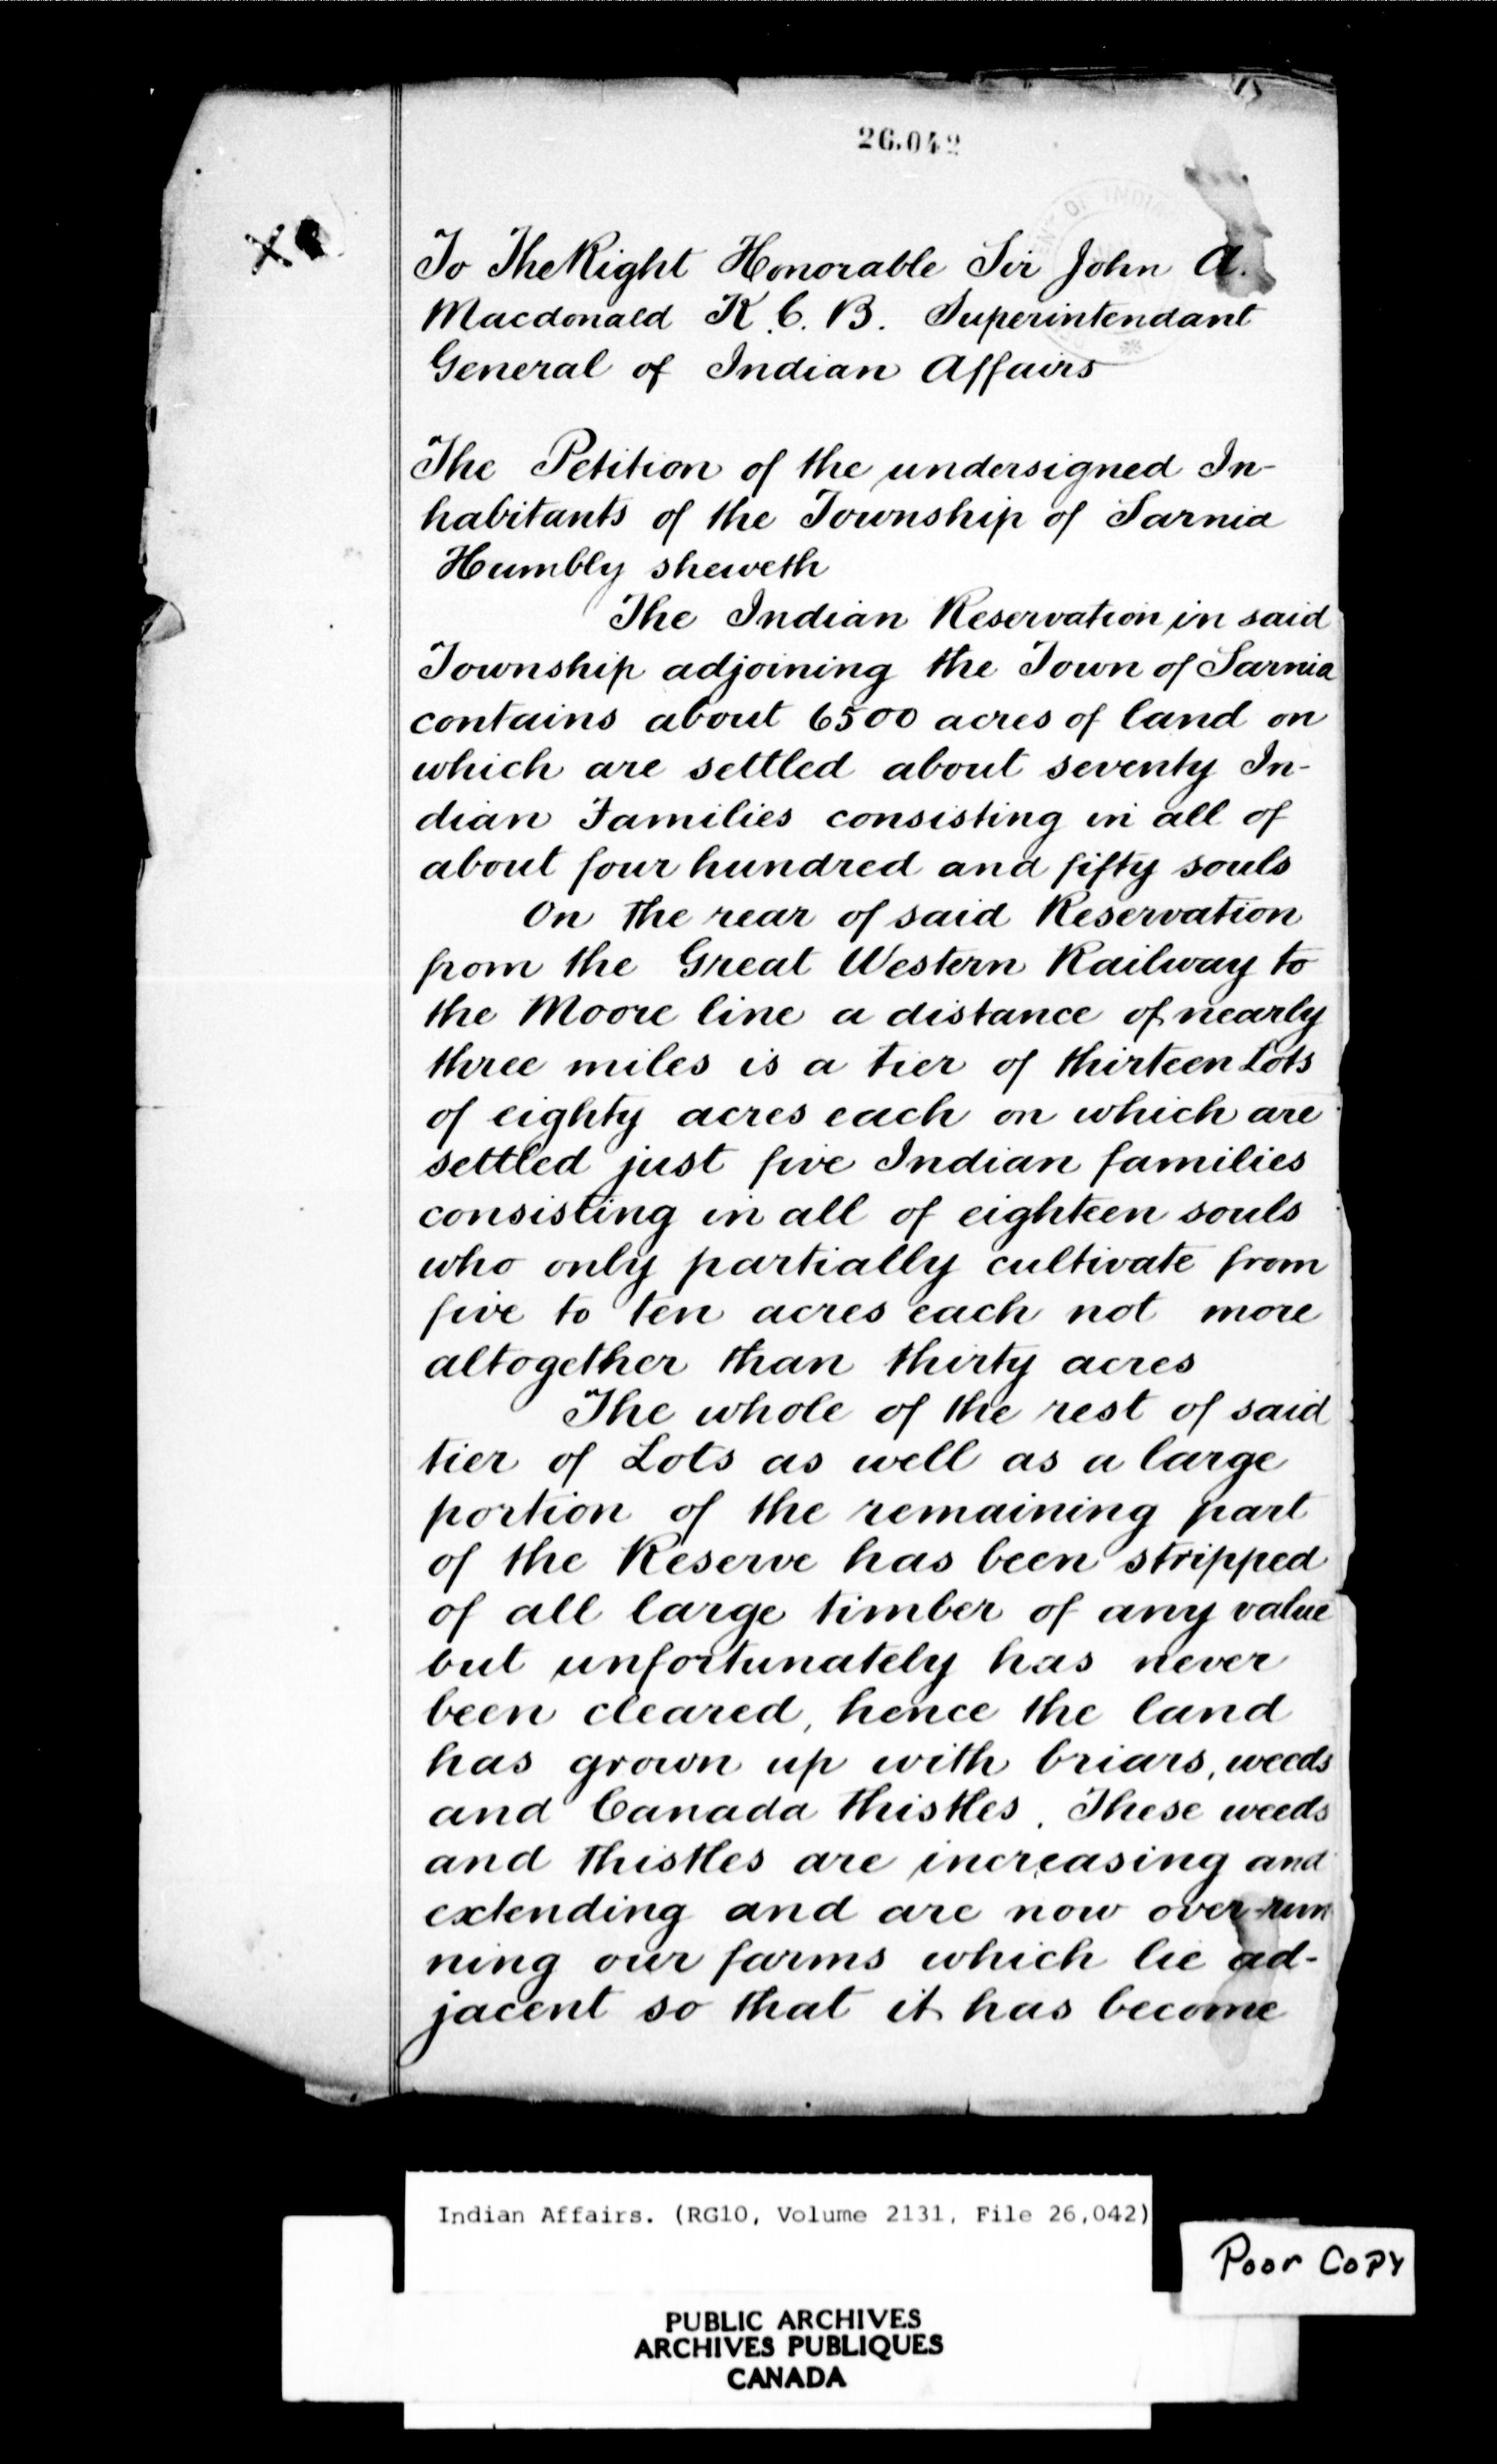 26.042
To The Right Honorable Sir John A.
Macdonald K.C.B. Superintendant
General of Indian Affairs
The Petition of the undersigned In-
habitants of the Township of Sarnia
Humbly sheweth
The Indian Reservation in said
Township adjoining the Town of Sarnia
contains about 6500 acres of land on
which are settled about seventy In-
dian Families consisting in all of
about four hundred and fifty souls
On the rear of said Reservation
from the Great Western Railway to
the Moore line a distance of nearly
three miles is a tier of thirteen Lots
of eighty acres each on which are
settled just five Indian families
consisting in all of eighteen souls
who only partially cultivate from
five to ten acres each not more
altogether than thirty acres
The whole of the rest of said
tier of Lots as well as a large
portion of the remaining part
of the Reserve has been stripped
of all large timber of any value
but unfortunately has never
been cleared, hence the land
has grown up with briars, weeds
and Canada thistles. These weeds
and thistles are increasing and
extending and are now over-run
ning our farms which lie ad-
jacent so that it has become
Indian Affairs. (RG10, Volume 2131, File 26,042)
Poor Copy
PUBLIC ARCHIVES
ARCHIVES PUBLIQUES
CANADA